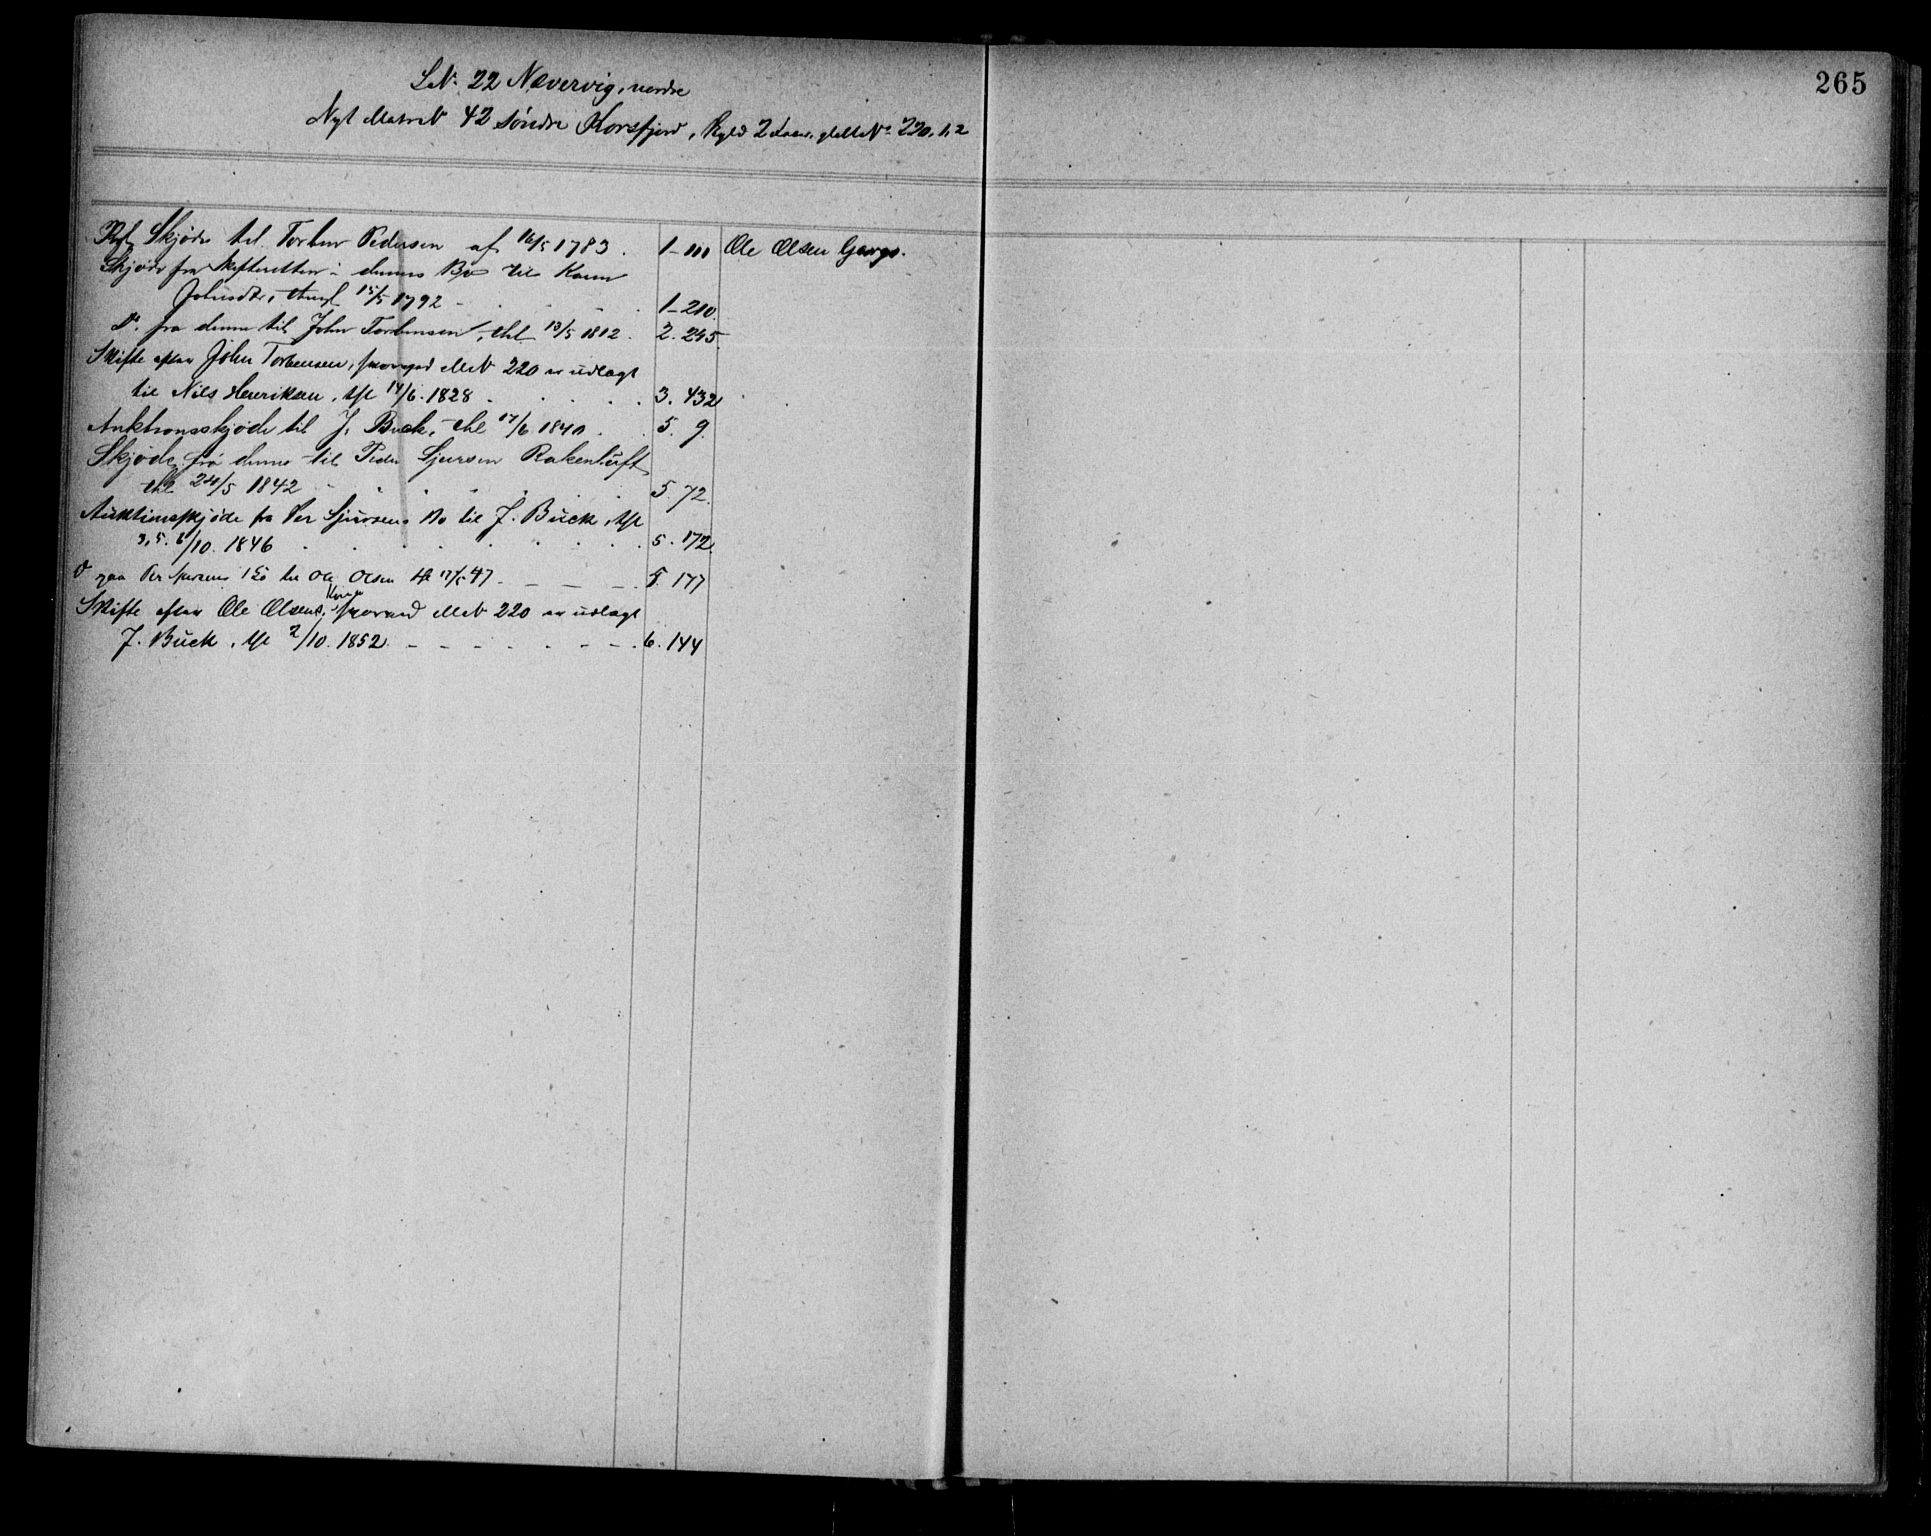 265
LN. 22 Nævervig, nordre
Nyt Matr N 42 søndre Korsfjord, Skyld 2 glMN. 220. 1, 2
Skjøde til Torben Pedersen af 16/5 1783. 1-100 Ole Olsen Gargo.
Skjøde fra Skifteretten i dennes Bo til Karen
Johnsdtr, 15/5 1792 1-210.
Do. fra denne til John Torbensen, thl 13/5 1812. 2. 245.
Skifte efter John Torbensen, hvorved MN 220 er udlagt
til Nils Henriksen, thl 14/6. 1828 3. 432
Auktionsskjøde til J. Buck, thl 17/6 1840. 5. 9.
Skjøde fra denne til Peder Sjursen Rakenluft
thl 24/5 1842 5. 72.
Auktionsskjøde fra Per Sjursens Bo til J. Buck, thl
3, 5. 6/10. 1846 5. 172.
Do paa Per Sjursens Bo til Ole Olsen thl 17/5 47. 5. 177
Skifte efter Ole Olsens Kone, hvorved MN 220 er udlagt
J. Buck, thl 2/10. 1852. 6. 144